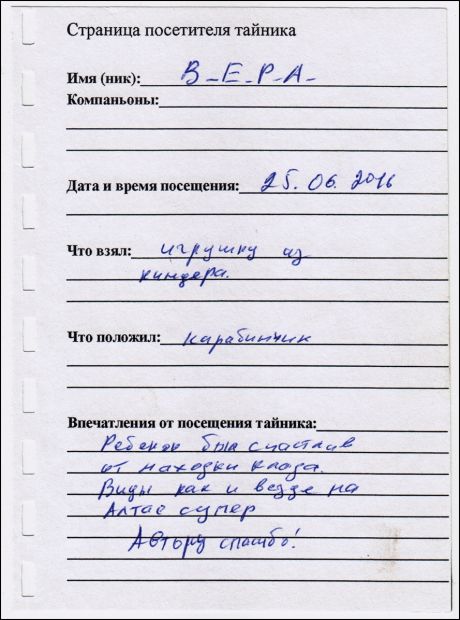 Страница посетителя тайника
Имя (ник): В-Е-Р-А-
Компаньоны:
Дата и время посещения: 25.06.2016
Что взял: игрушку из
киндера.
Что положил: карабинчик
Впечатления от посещения тайника:
Ребенок был счастлив
от находки клада.
Виды как и везде на
Алтае супер
Автору спасибо!